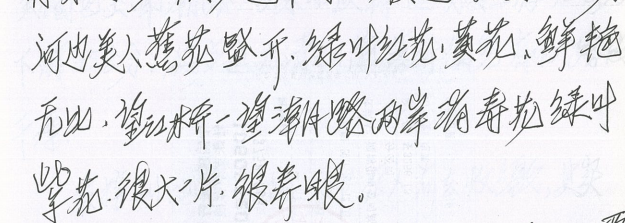 河边美人蕉花盛开、绿叶红花,黄花、鲜艳
无比,望江桥一望潮月路两岸消寿花绿叶
紫花,很大一片,很养眼。